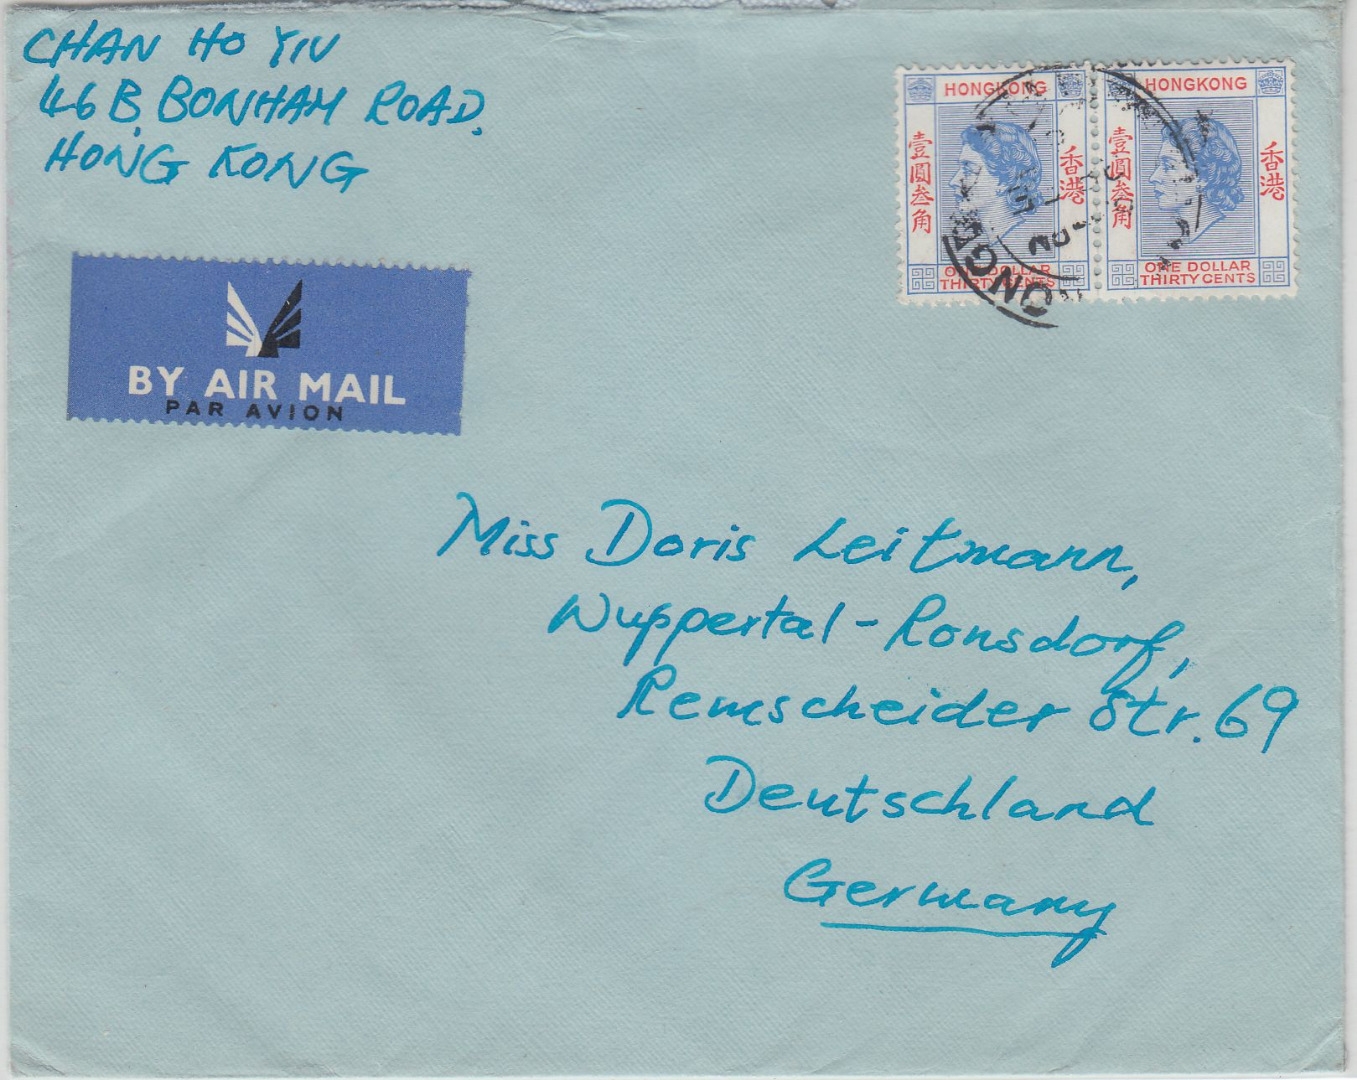 CHAN HO YIU
46B, BONHAM ROAD,
HONG KONG
HONG KONG
壹圓叁角
香港
ONE DOLLAR
THIRTY CENTS
HONG KONG
壹圓叁角
香港
ONE DOLLAR
THIRTY CENTS
BY AIR MAIL
PAR AVION
Miss Doris Leitmann,
Wuppertal-Ronsdorf,
Remscheider Str. 69
Deutschland
Germany